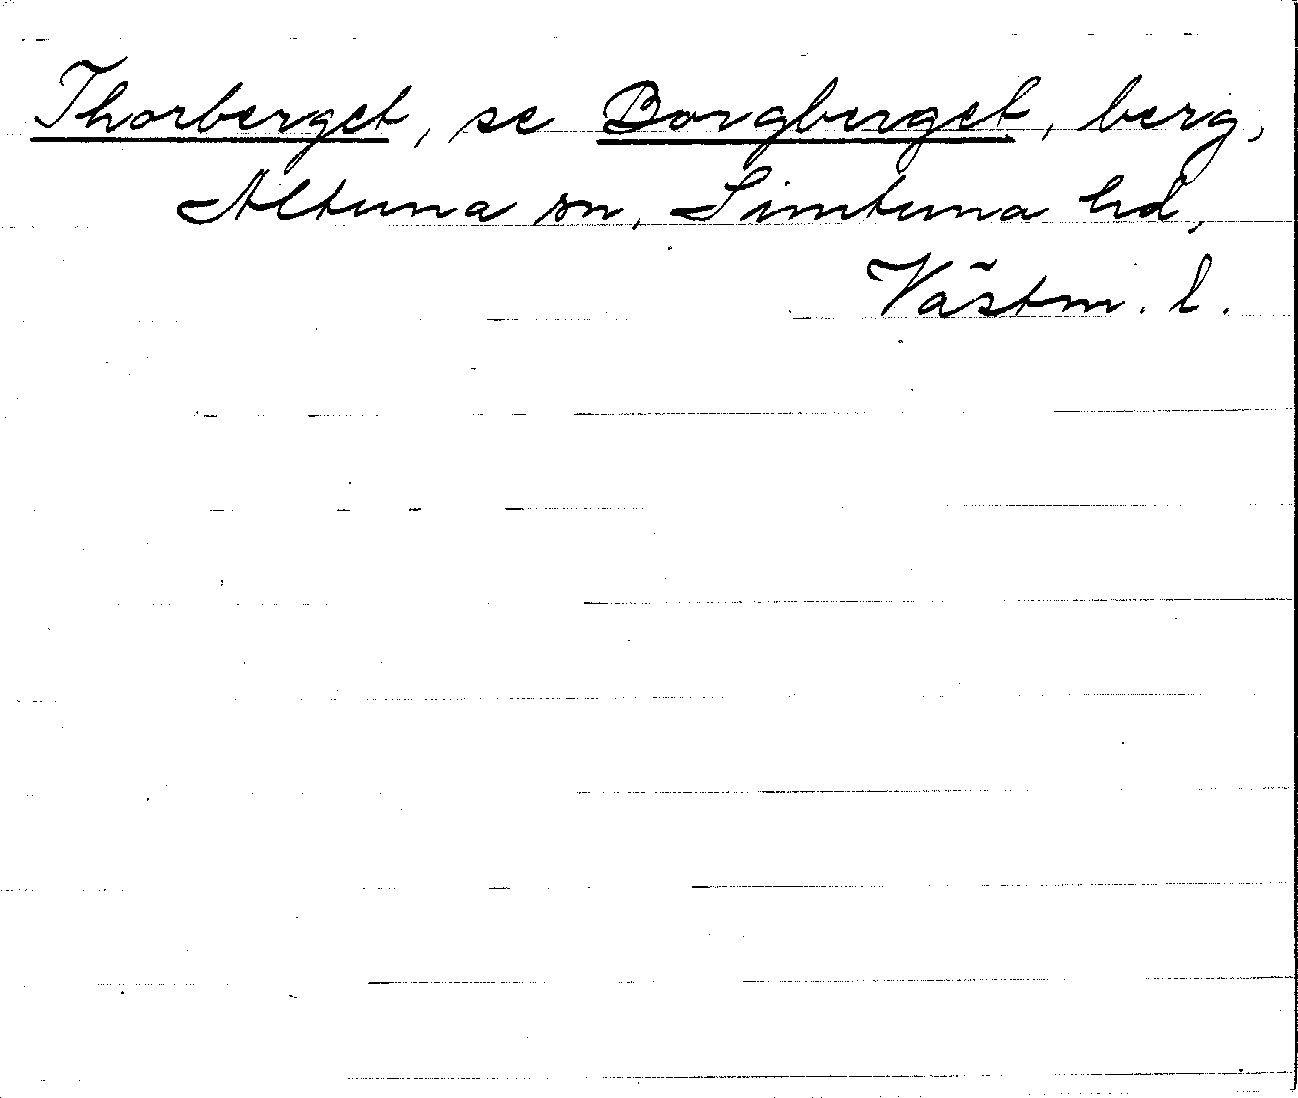 Thorberget, se Borgberget, berg,
Altuna sn, Simtuna hd,
Västm. l.